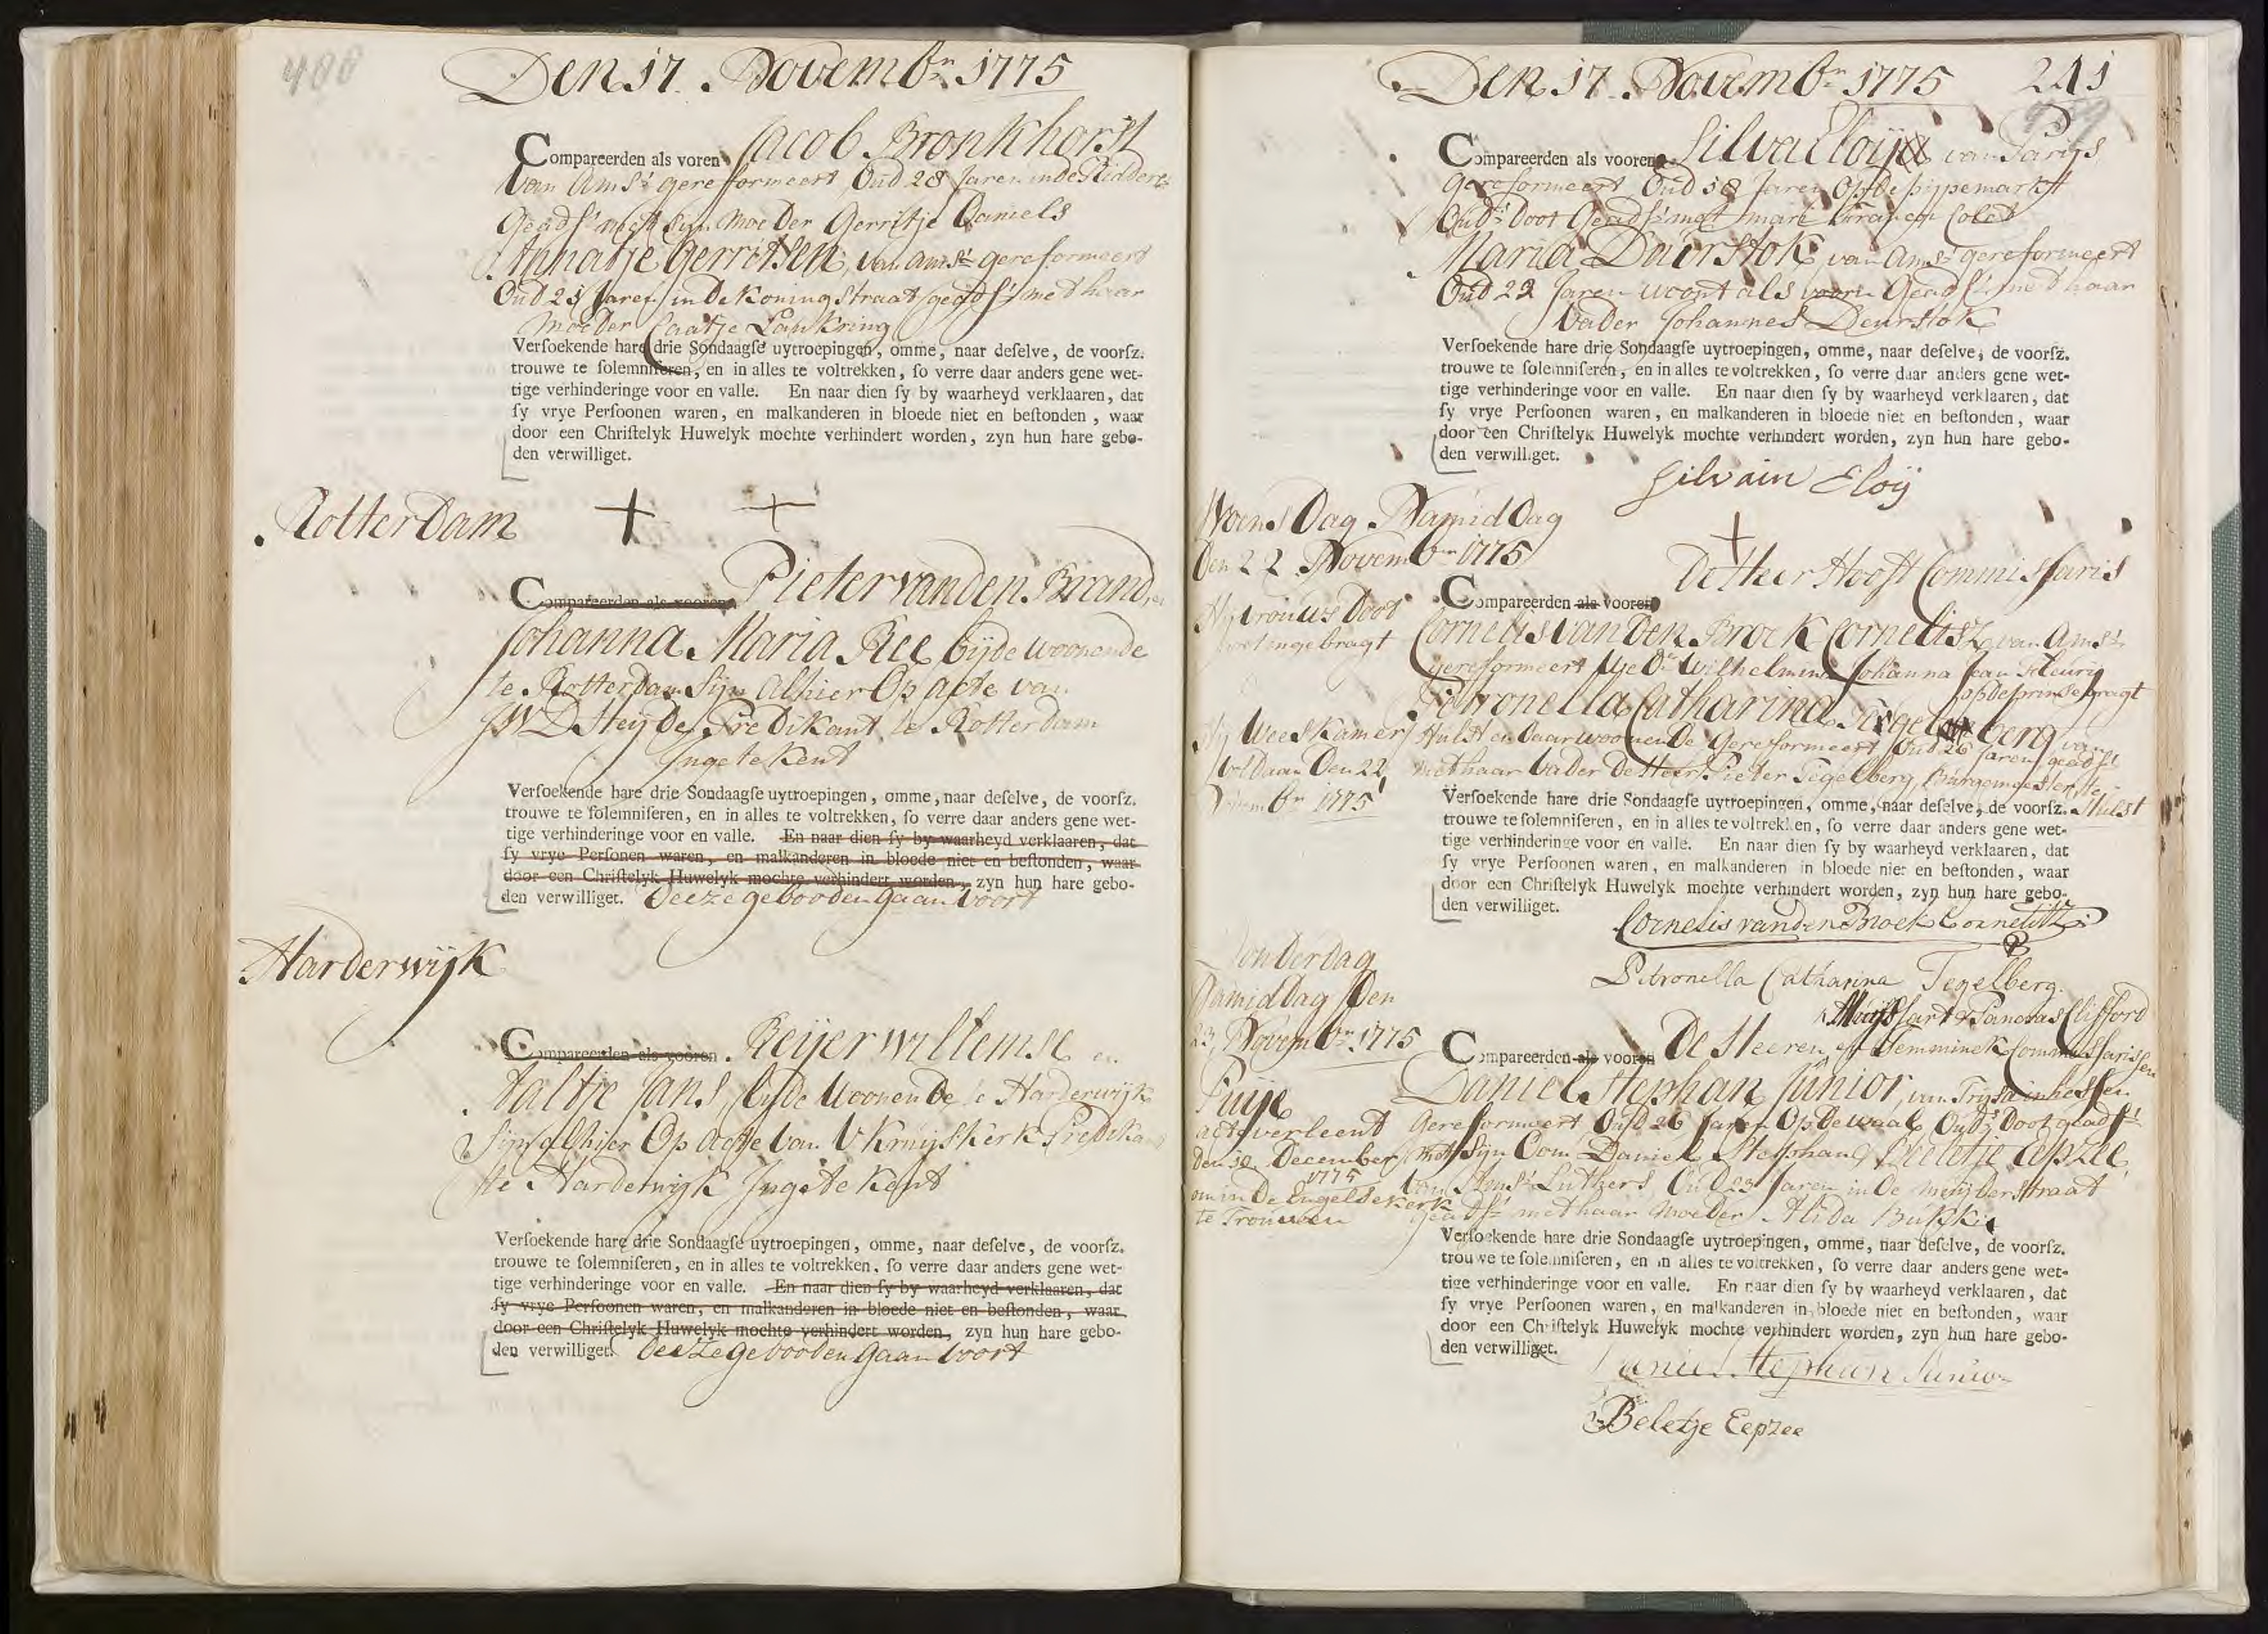 400
Den 17 Novembr 1775
Compareerden als voren Jacob Bronkhorst
van Amst gereformeert Oud 28 Jaren in de Ridders
Geadst met Syn Moeder Gerritje Daniels
Annatje Gerritsen, van Amst gereformeert
Oud 21 Jaren in De Koningstraat geadst met haar
Moeder Caatje Lankring
Verſoekende hare drie Sondaagſe uytroepingen, omme, naar deſelve, de voorſz.
trouwe te ſolemniſeren, en in alles te voltrekken, ſo verre daar anders gene wet-
tige verhinderinge voor en valle. En naar dien ſy by waarheyd verklaaren, dat
ſy vrye Perſoonen waren, en malkanderen in bloede niet en beſtonden, waar
door een Chriſtelyk Huwelyk mochte verhindert worden, zyn hun hare gebo-
den verwilliget.
+ +
Rotterdam
Compareerden als vooren Pieter van den Brand, en
Johanna Maria Ree byde woonende
te Rotterdam Sijn alhier Op acte van
Predikant te Rotterdam
Ingetekent
Verſoekende hare drie Sondaagſe uytroepingen, omme, naar deſelve, de voorſz.
trouwe te ſolemniſeren, en in alles te voltrekken, ſo verre daar anders gene wet-
tige verhinderinge voor en valle. En naar dien ſy by waarheyd verklaaren, dat
ſy vrye Perſonen waren, en malkanderen in bloede niet en beſtonden, waar
door een Chriſtelyk Huwelyk mochte verhindert worden, zyn hun hare gebo-
den verwilliget. Deeze gebooden gaan voort
Harderwijk
Compareerden als vooren Reijer Willemse en
Aaltje Jans, byde Woonende te Harderwijk
Sijn alhier Op acte van V Kruijskerk Predikant
te Harderwijk Ingetekent
Verſoekende hare drie Sondaagſe uytroepingen, omme, naar deſelve, de voorſz.
trouwe te ſolemniſeren, en in alles te voltrekken, ſo verre daar anders gene wet-
tige verhinderinge voor en valle. En naar dien ſy by waarheyd verklaaren, dat
ſy vrye Perſoonen waren, en malkanderen in bloede niet en beſtonden, waar
door een Chriſtelyk Huwelyk mochte verhindert worden, zyn hun hare gebo-
den verwilliget. Deeze gebooden gaan voort
Den 17 Novembr 1775
241
Compareerden als vooren Silva Eloy van Parys
gereformeert Oud 38 Jaren Op de pijpemarkt
Ouds Doot Geadst met
Maria Duirstok van Amst gereformeert
Oud 22 Jaren woont als voorn Geadst met haar
Vader Johannes Deurstok
Verſoekende hare drie Sondaagſe uytroepingen, omme, naar deſelve, de voorſz.
trouwe te ſolemniſeren, en in alles te voltrekken, ſo verre daar anders gene wet-
tige verhinderinge voor en valle. En naar dien ſy by waarheyd verklaaren, dat
ſy vrye Perſoonen waren, en malkanderen in bloede niet en beſtonden, waar
door een Chriſtelyk Huwelyk mochte verhindert worden, zyn hun hare gebo-
den verwilliget.
Silvain Eloÿ
+
Woensdag Namiddag
Den 22 Novembr 1775
De Heer Hooft Commissaris
Hy vrouws Doot
ingebragt
Hy Weeskamer
voldaan Den 22
Novembr 1775
Compareerden als vooren
Cornelis van Den Broek Cornelisz van Amst
gereformeert Wedr Wilhelmina Johanna Jean Fleurij
op de prinsegragt
Petronella Catharina Tegelberg van
Hulst en Daar woonende Gereformeert Oud 26 Jaren geadst
met haar Vader De Heer Pieter Tegelberg, Burgemeester te
Hulst
Verſoekende hare drie Sondaagſe uytroepingen, omme, naar deſelve, de voorſz.
trouwe te ſolemniſeren, en in alles te voltrekken, ſo verre daar anders gene wet-
tige verhinderinge voor en valle. En naar dien ſy by waarheyd verklaaren, dat
ſy vrye Perſoonen waren, en malkanderen in bloede niet en beſtonden, waar
door een Chriſtelyk Huwelyk mochte verhindert worden, zyn hun hare gebo-
den verwilliget.
Cornelis van den Broek Cornelisz
Petronella Catharina Tegelberg.
Donderdag
Namiddag Den
23 Novembr 1775
Puije
acte verleent
den 10 December
1775
om in De Engelse kerk
te Trouwen
Pancras Clifford
Compareerden als vooren De Heeren en Temminck Commissarissen
Daniel Stephan Junior, van Trysa in hessen
Gereformeert, Oud 26 Jaren Op De waal Ouds Doot geadst
met Syn Oom Daniel Stephan & Beletje Eepzee
van Amst Luthers Oud 23 Jaren in De
geadst met haar Moeder Alida
Verſoekende hare drie Sondaagſe uytroepingen, omme, naar deſelve, de voorſz.
trouwe te ſolemniſeren, en in alles te voltrekken, ſo verre daar anders gene wet-
tige verhinderinge voor en valle. En naar dien ſy by waarheyd verklaaren, dat
ſy vrye Perſoonen waren, en malkanderen in bloede niet en beſtonden, waar
door een Chriſtelyk Huwelyk mochte verhindert worden, zyn hun hare gebo-
den verwilliget.
Daniel Stephan Junior
Beletje Eepzee